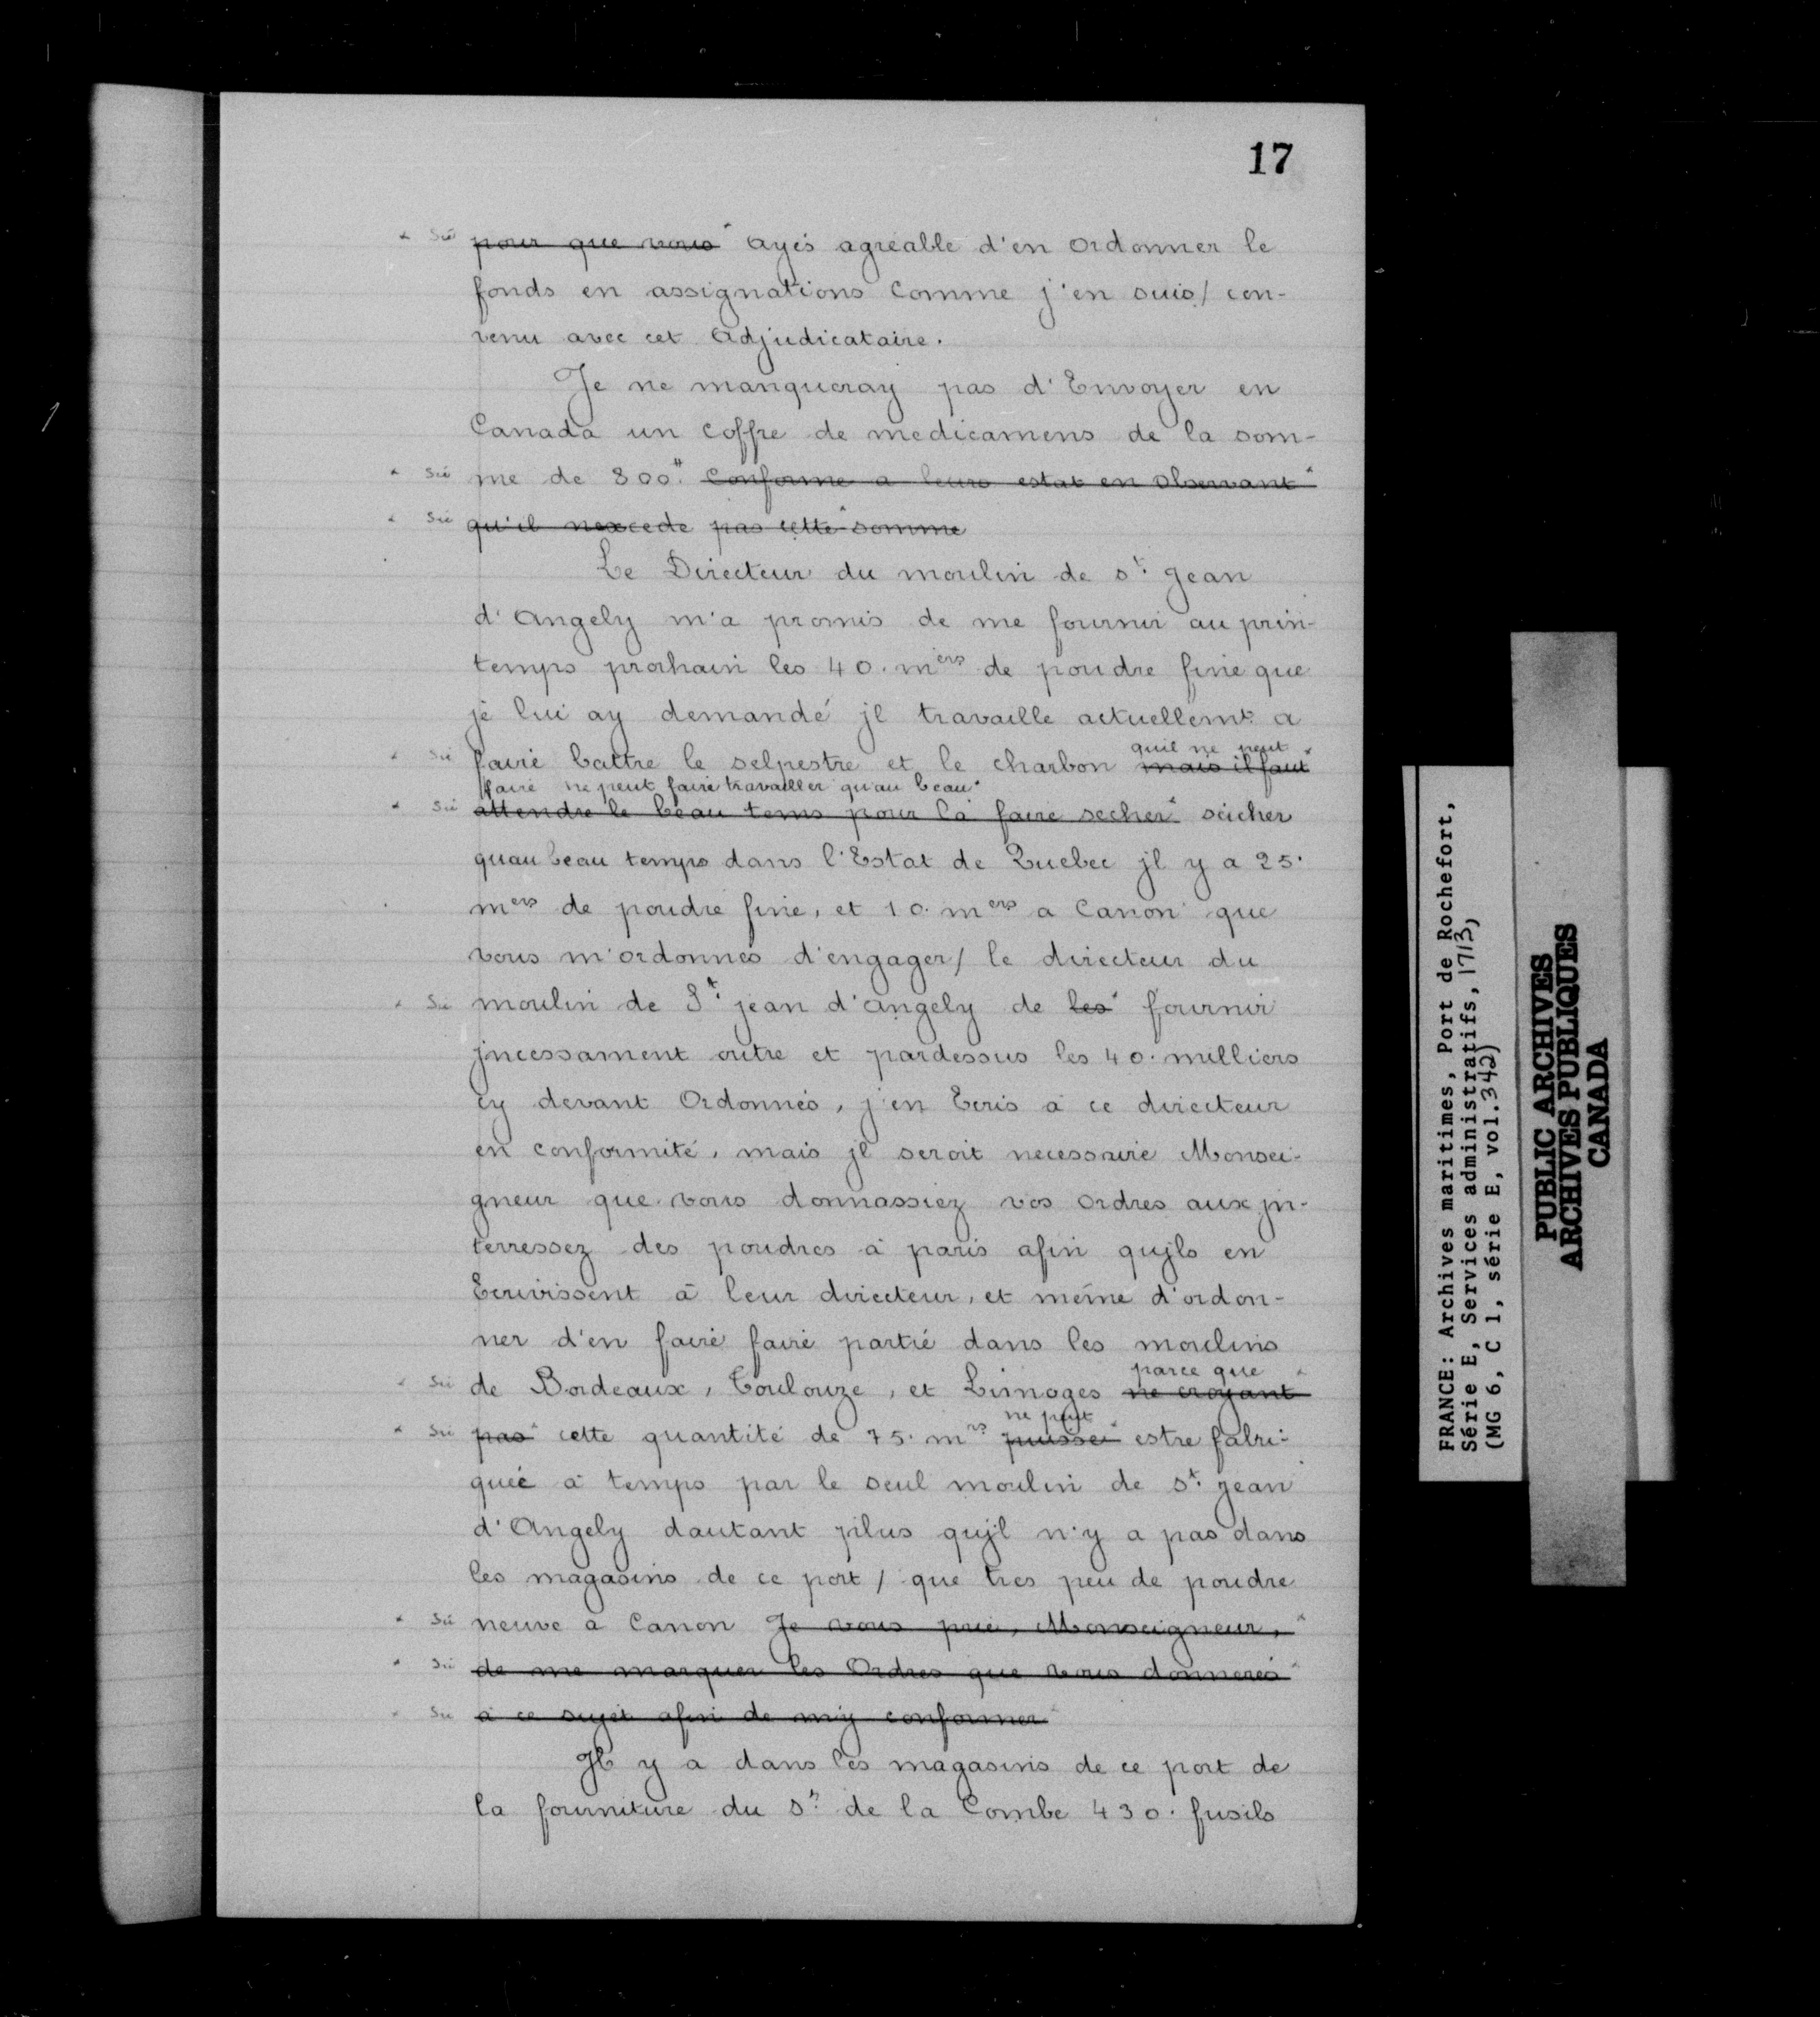 17
* Sic pour que vous* ayés agreable d'en ordonner le
fonds en assignations comme j'en suis/ con-
venu avec cet adjudicataire.
Je ne manqueray pas d'Envoyer en
Canada un coffre de medicamens de la som-
* Sic me de 800.# Conforme a leurs estat en observant*
* Sic qu'il nexcede pas cette* somme
Le Directeur du moulin de st. Jean
d'Angely m'a promis de me fournir au prin-
temps prochain les 40. mers de poudre fine que
je lui ay demandé jl travaille actuellemt. a
quil ne peut
* Sic faire battre le selpestre et le charbon mais il faut*
faire ne peut faire travailler qu'au beau*
* Sic attendre le beau tems pour la faire secher* seicher
quau beau temps dans l'Estat de Quebec jl y a 25.
mers de poudre fine, et 10. mers a Canon que
vous m'ordonnés d'engager/ le directeur du
* Sic moulin de St. jean d'angely de les* fournir
jncessament outre et pardessus les 40. milliers
cy devant Ordonnés, j'en Ecris à ce directeur
en conformité, mais jl seroit necessaire Monsei-
gneur que vous donnassiez vos ordres aux jn-
terressez des poudres à paris afin qujls en
Ecrivissent à leur directeur, et même d'ordon-
ner d'en faire faire partie dans les moulins
parce que
* Sic de Bordeaux, Toulouze, et Limoges ne croyant*
ne peut
* Sic pas* cette quantité de 75. mrs puisse* estre fabri-
quée à temps par le seul moulin de st. Jean
d'Angely dautant plus qujl n'y a pas dans
les magasins de ce port / que tres peu de poudre
* Sic neuve à Canon Je vous prie, Monseigneur,*
* Sic de me marquer les Ordres que vous donnerés*
* Sic à ce sujet afin de m'y conformer*
Jl y a dans les magasins de ce port de
la fourniture du Sr. de la Combe 430. fusils
FRANCE: Archives maritimes, Port de Rochefort,
Série E, Services administratifs, 1713)
(MG 6, C 1, série E, vol.342)
PUBLIC ARCHIVES
ARCHIVES PUBLIQUES
CANADA